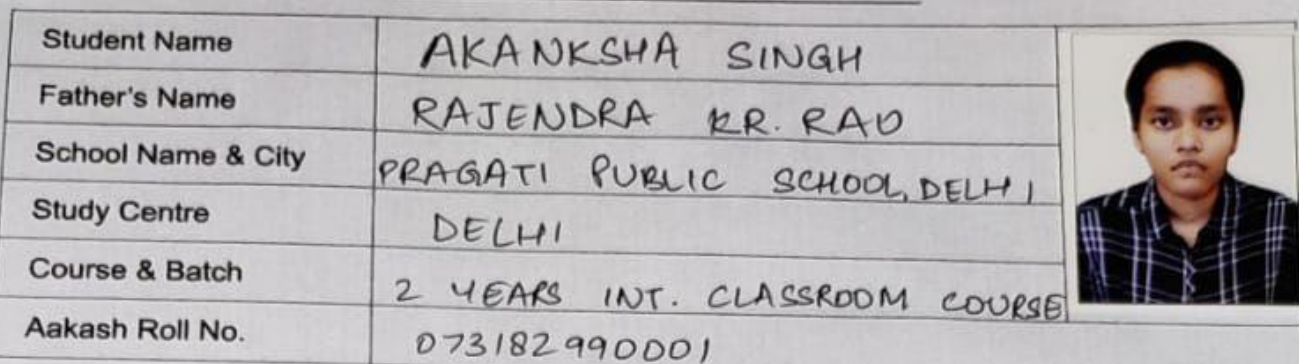 Student Name AKANKSHA SINGH
Father's Name RAJENDRA KR. RAO
School Name & City PRAGATI PUBLIC SCHOOL, DELHI
Study Centre DELHI
Course & Batch 2 YEARS INT. CLASSROOM COURSE
Aakash Roll No. 073182990001